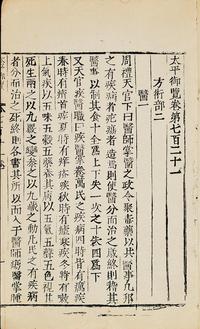 太平御覽卷第七百二十一
方術部二
醫一
周禮天官下曰醫師掌醫之政令聚毒藥以共醫事凡邦
之有疾病者疕瘍者造焉則使醫分而治之歲終則稽其
醫事以制其食十全爲上下失一次之十失四爲下
又天官疾醫職曰疾醫掌養萬民之疾病四時皆有癘疾
春時有痟首疾夏時有痒疥疾秋時有瘧寒疾冬時有嗽
上氣疾以五味五穀五藥養其病以五氣五聲五色視其
死生兩之以九竅之變參之以九藏之動凡民之有疾病
者分而治之死終則各書其所以而入于醫師瘍醫掌腫